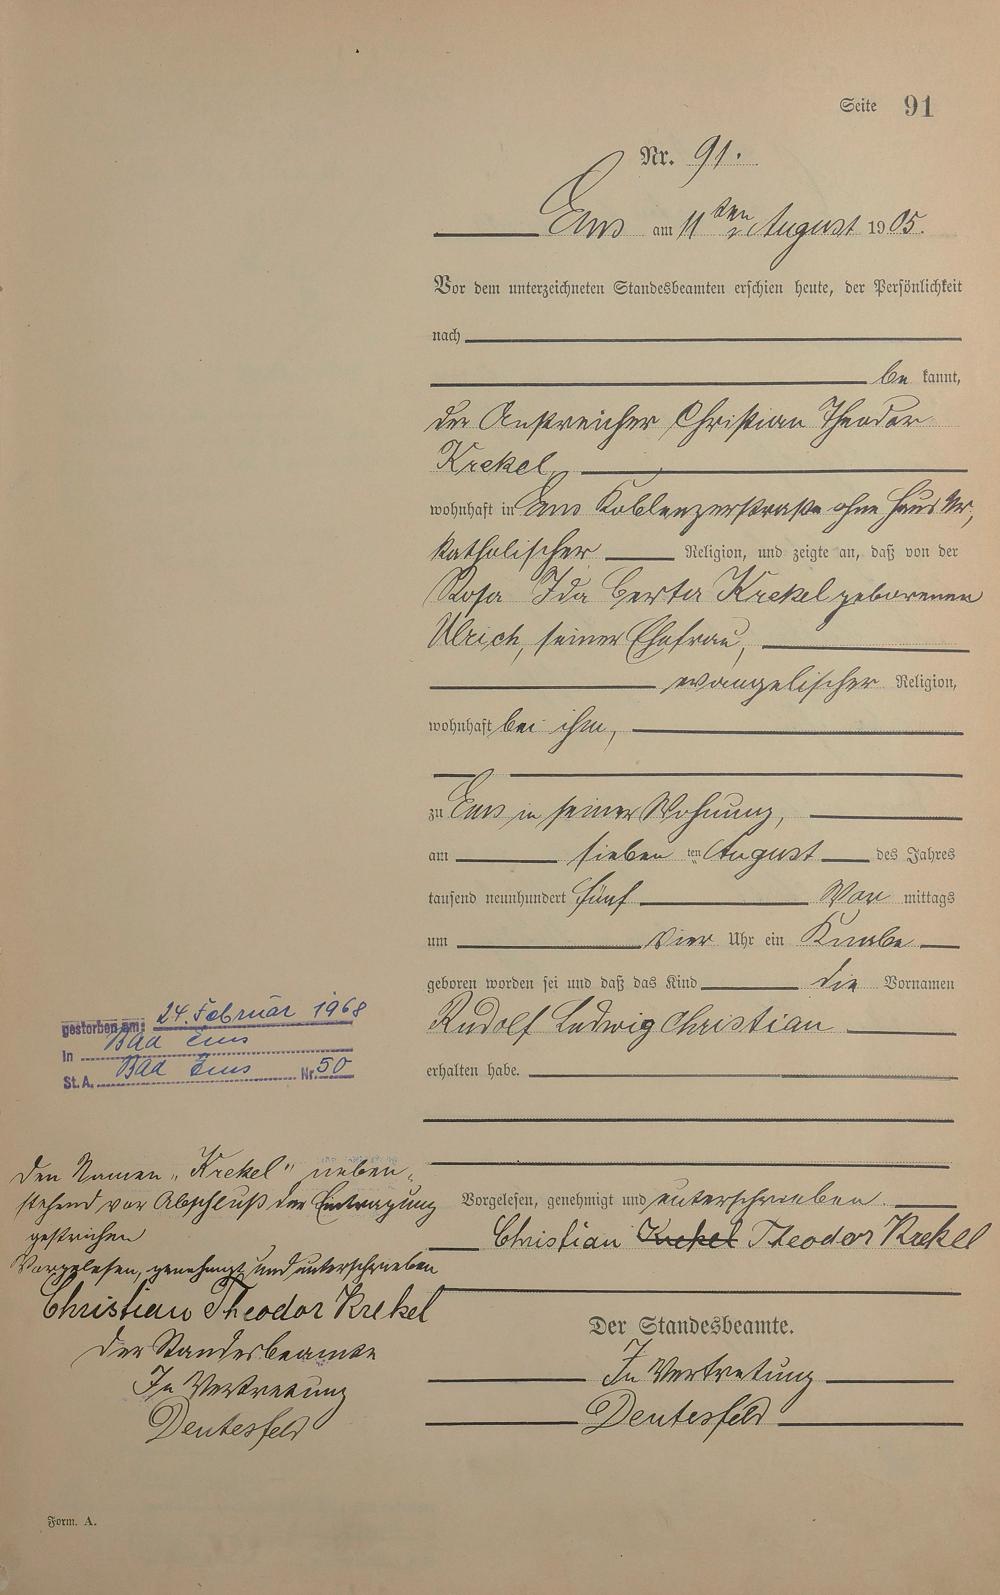 Seite 91
Nr. 91.
Ems am 11ten August 1905.
Vor dem unterzeichneten Standesbeamten erschien heute, der Persönlichkeit
nach
be kannt,
der Anstreicher Christian Theodor
Krekel,
wohnhaft in Ems Koblenzerstraße ohne Haus Nr,
katholischer Religion, und zeigte an, daß von der
Rosa Ida Berta Krekel geborenen
Ulrich, seiner Ehefrau,
evangelischer Religion,
wohnhaft bei ihm,
zu Ems in seiner Wohnung,
am sieben ten August des Jahres
tausend neunhundert fünf Vor mittags
um vier Uhr ein Knabe
geboren worden sei und daß das Kind die Vornamen
Rudolf Ludwig Christian
erhalten habe.
Vorgelesen, genehmigt und unterschrieben.
Christian Krekel Theodor Krekel
Der Standesbeamte.
In Vertretung
Deutesfeld
gestorben am: 24. Februar 1968
In Bad Ems
St. A. Bad Ems Nr. 50
Den Namen „Krekel" neben-
stehend vor Abschluß der Eintragung
gestrichen
Vorgelesen, genehmigt und unterschrieben
Christian Theodor Krekel
Der Standesbeamte
In Vertretung
Deutesfeld
Form. A.